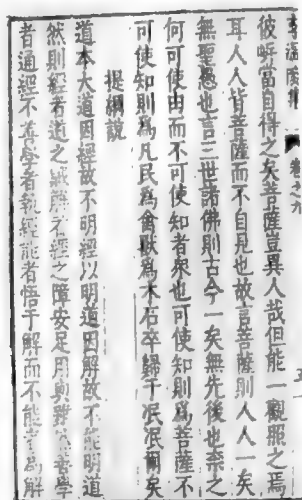 彼岸當自得之矣菩薩豈異人哉但能一觀照之焉
耳人人皆菩薩而不自見也故言菩薩則人人一矣
無聖愚也言三世諸佛則古今一矣無先後也柰之
何可使由而不可使知者衆也可使知則為菩薩不
可使知則為凡民為禽獸為木石卒歸于泯泯爾矣
提綱說
道本大道因經故不明經以明道因解故不能明道
然則經者道之 解者經之障安足用與 善學
者通經不善學者執經能者悟于解而不能 為解